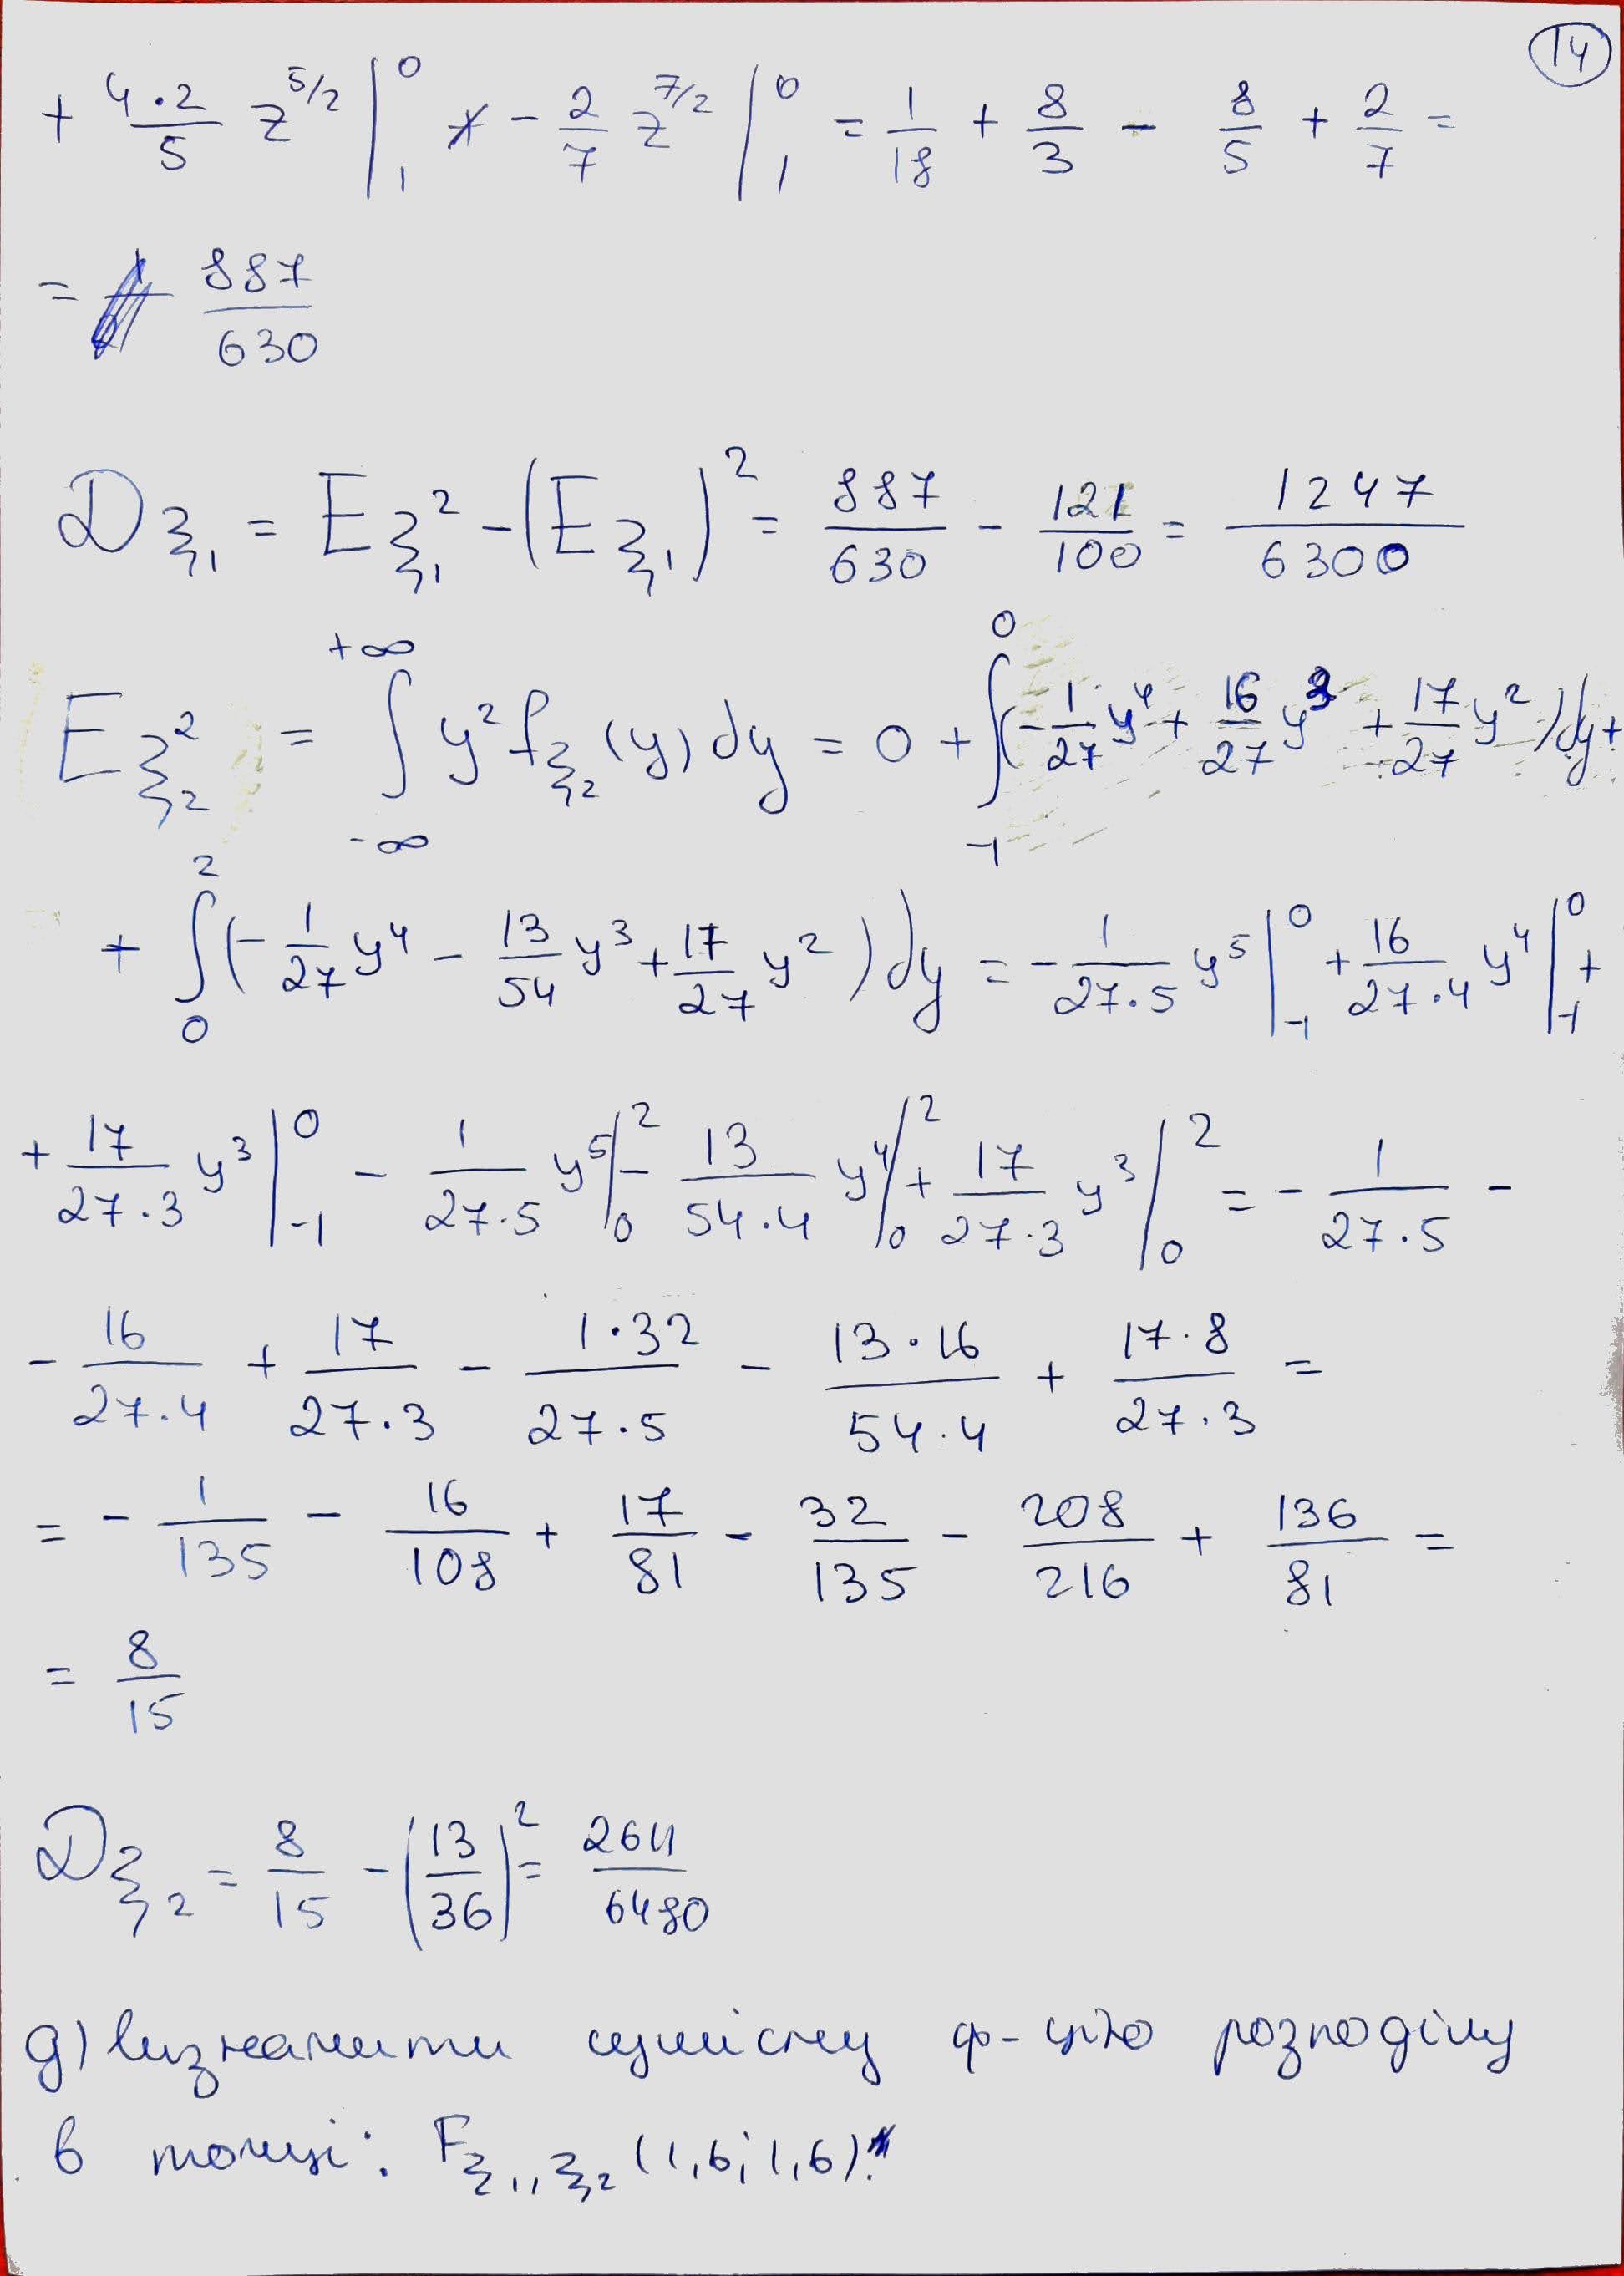 14
+ 4·2/5 z^{5/2} |_1^0 - 2/7 z^{7/2} |_1^0 = 1/18 + 8/3 - 8/5 + 2/7 =
= 887/630
Dξ₁ = Eξ₁² - (Eξ₁)² = 887/630 - 121/100 = 1247/6300
Eξ₂² = ∫_{-∞}^{+∞} y² f_{ξ₂}(y) dy = 0 + ∫_{-1}^{0} (- 1/27 y⁴ + 16/27 y³ + 17/27 y²) dy +
+ ∫_0^2 (- 1/27 y⁴ - 13/54 y³ + 17/27 y²) dy = - 1/27·5 y⁵ |_{-1}^0 + 16/27·4 y⁴ |_{-1}^0 +
+ 17/27·3 y³ |_{-1}^0 - 1/27·5 y⁵ |_0^2 - 13/54·4 y⁴ |_0^2 + 17/27·3 y³ |_0^2 = - 1/27·5 -
- 16/27·4 + 17/27·3 - 1·32/27·5 - 13·16/54·4 + 17·8/27·3 =
= - 1/135 - 16/108 + 17/81 - 32/135 - 208/216 + 136/81 =
= 8/15
Dξ₂ = 8/15 - (13/36)² = 2611/6480
д) Визначити сумісну ф-цію розподілу
в точці: F_{ξ₁,ξ₂} (1,6; 1,6).